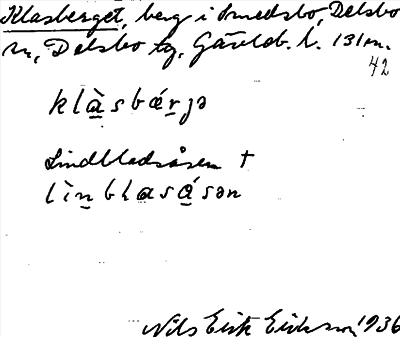 Klasberget, berg i Smedsbo, Delsbo
sn, Delsbo tg, Gävleb. l. 131 m.
42
klàsbǽrjə
Lindbladsåsen †
lìnblasásən
Nils Erik Eriksson 1936